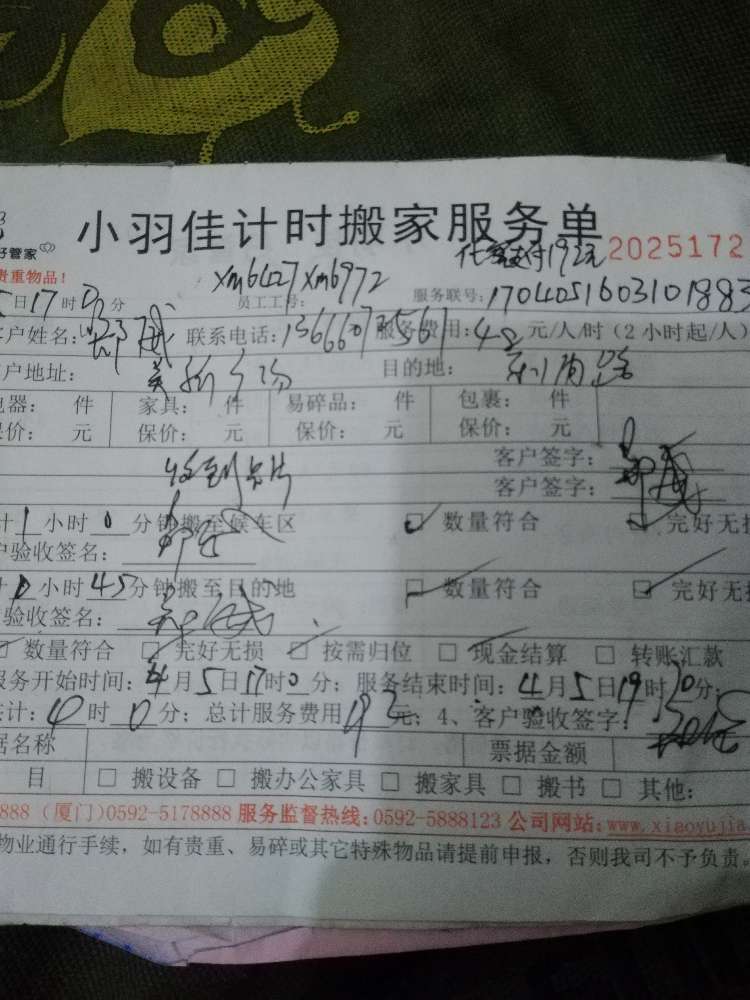 小羽佳计时搬家服务单
好管家
代客支付192元 2025172
贵重物品！
xm6427 xm6972
日17时0分 员工工号： 服务联号：1704051603101883
客户姓名： 联系电话：13666075561 服务费用：42元/人/时（2小时起/人）
户地址： 目的地：
电器： 件 家具： 件 易碎品： 件 包裹： 件
保价： 元 保价： 元 保价： 元 保价： 元
收到卡片 客户签字：
客户签字：
计1小时0分钟搬至候车区 数量符合 完好无损
户验收签名：
计0小时45分钟搬至目的地 数量符合 完好无损
验收签名：
数量符合 完好无损 按需归位 现金结算 转账汇款
服务开始时间：4月5日17时0分；服务结束时间：4月5日19时30分；
共计：时0分；总计服务费用元；4、客户验收签字：
据名称 票据金额
目 搬设备 搬办公家具 搬家具 搬书 其他：
888 (厦门)0592-5178888 服务监督热线：0592-5888123 公司网站：www.xiaoyujia
物业通行手续，如有贵重、易碎或其它特殊物品请提前申报，否则我司不予负责。